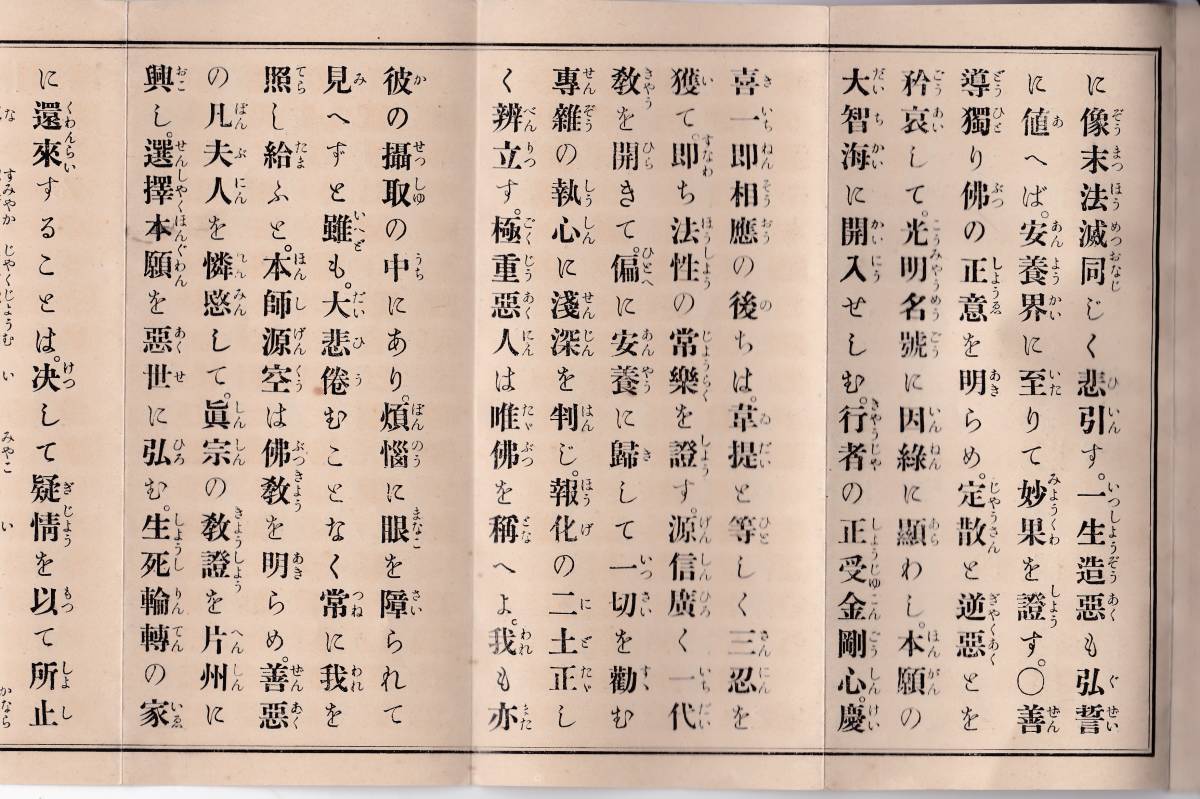 に像末法滅同じく悲引す。一生造惡も弘誓
に値へば。安養界に至りて妙果を證す。〇善
導獨り佛の正意を明らめ。定散と逆惡とを
矜哀して。光明名號に因緣に顯わし。本願の
大智海に開入せしむ。行者の正受金剛心。慶
喜一即相應の後ちは。草提と等しく三忍を
獲て。即ち法性の常樂を證す。源信廣く一代
教を開きて。偏に安養に歸して一切を勸む
專雜の執心に淺深を判じ。報化の二土正し
く辨立す。極重惡人は唯佛を稱へよ。我も亦
彼の攝取の中にあり。煩惱に眼を障られて
見へずと雖も。大悲倦むことなく常に我を
照し給ふと。本師源空は佛教を明らめ。善惡
の凡夫人を憐愍して。眞宗の教證を片州に
興し。選擇本願を惡世に弘む。生死輪轉の家
に還來することは。决して疑情を以て所止